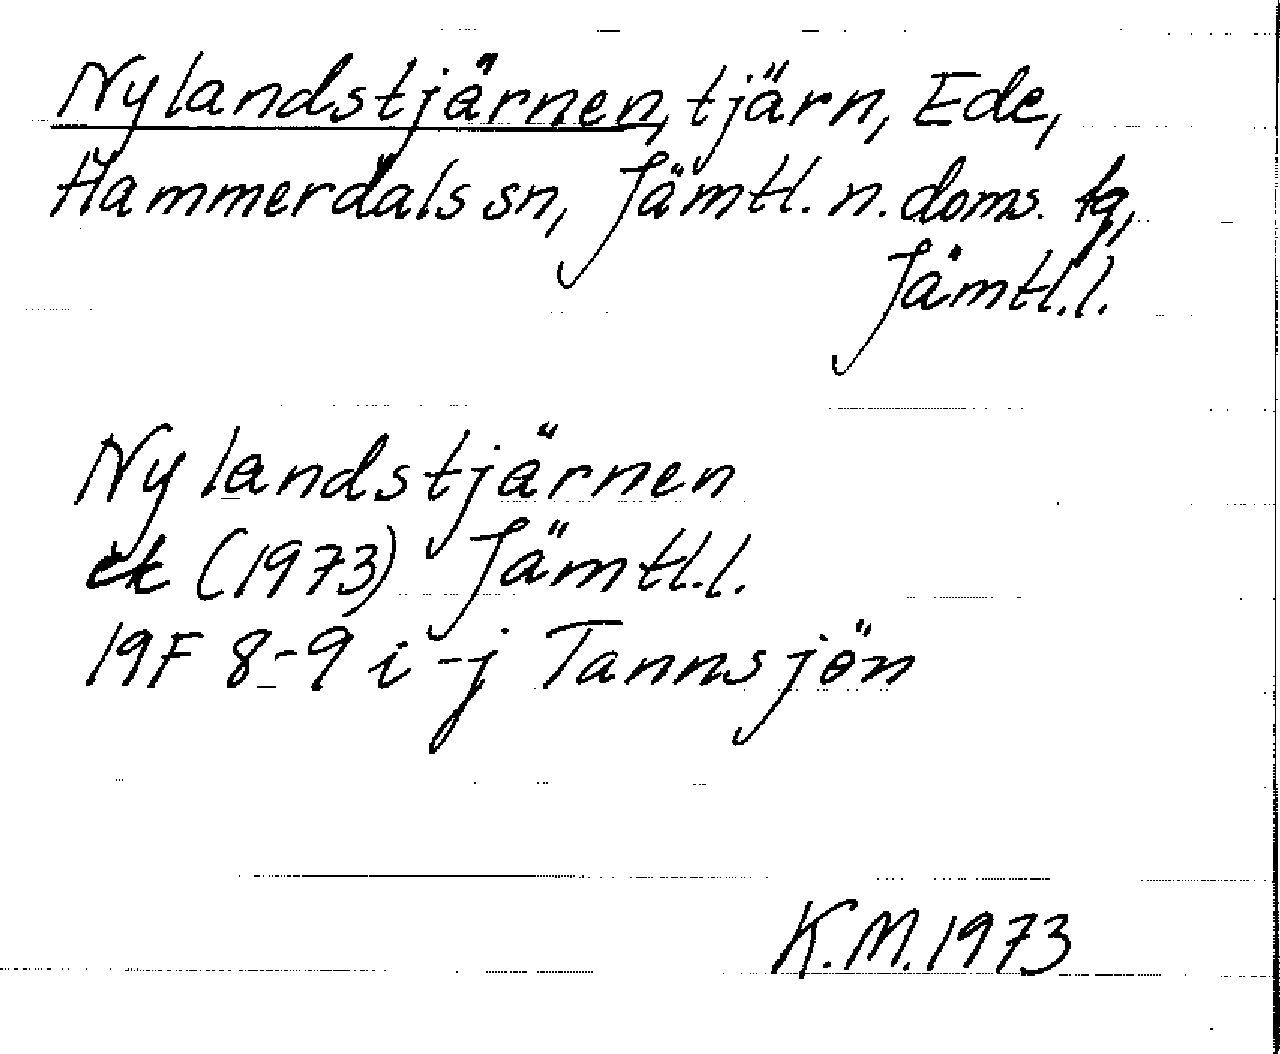 Nylandstjärnen, tjärn, Ede,
Hammerdals sn, Jämtl. n. doms. tg,
Jämtl. l.
Nylandstjärnen
ek (1973) Jämtl. l.
19F 8-9 i-j Tannsjön
K.M. 1973